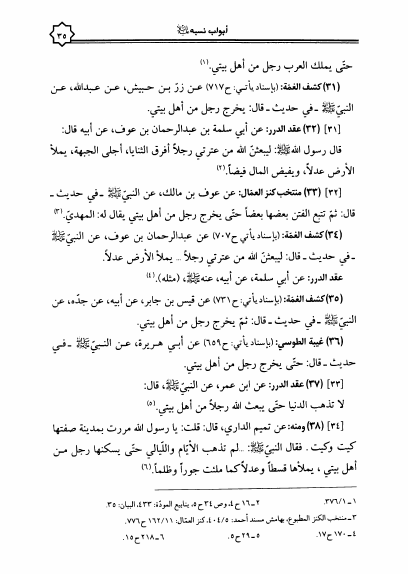 أبواب نسبه ﷺ
٣٥
حتّى يملك العرب رجل من أهل بيتي.(١)
(٣١) كشف الغمّة: (بإسناد يأتي: ح٧١٧) عن زرّ بن حبيش، عن عبدالله، عن
النبيّ ﷺ ـ في حديث ـ قال: يخرج رجل من أهل بيتي.
[٣١] (٣٢) عقد الدرر: عن أبي سلمة بن عبدالرحمان بن عوف، عن أبيه قال:
قال رسول الله ﷺ: ليبعثنّ الله من عترتي رجلاً أفرق الثنايا، أجلى الجبهة، يملأ
الأرض عدلاً، ويفيض المال فيضاً.(٢)
[٣٢] (٣٣) منتخب كنز العمّال: عن عوف بن مالك، عن النبيّ ﷺ ـ في حديث ـ
قال: ثمّ تتبع الفتن بعضها بعضاً حتّى يخرج رجل من أهل بيتي يقال له: المهديّ.(٣)
(٣٤) كشف الغمّة: (بإسناد يأتي: ح٧٠٧) عن عبدالرحمان بن عوف، عن النبيّ ﷺ
ـ في حديث ـ قال: ليبعثنّ الله من عترتي رجلاً ... يملأ الأرض عدلاً.
عقد الدرر: عن أبي سلمة، عن أبيه، عنه ﷺ، (مثله).(٤)
(٣٥) كشف الغمّة: (بإسناد يأتي: ح٧٣١) عن قيس بن جابر، عن أبيه، عن جدّه، عن
النبيّ ﷺ ـ في حديث ـ قال: ثمّ يخرج رجل من أهل بيتي.
(٣٦) غيبة الطوسي: (بإسناد يأتي: ح٦٥٩) عن أبي هريرة، عن النبيّ ﷺ ـ في
حديث ـ قال: حتّى يخرج رجل من أهل بيتي.
[٣٣] (٣٧) عقد الدرر: عن ابن عمر، عن النبيّ ﷺ، قال:
لا تذهب الدنيا حتّى يبعث الله رجلاً من أهل بيتي.(٥)
[٣٤] (٣٨) ومنه: عن تميم الداري، قال: قلت: يا رسول الله مررت بمدينة صفتها
كيت وكيت. فقال النبيّ ﷺ: ...لم تذهب الأيّام واللّيالي حتّى يسكنها رجل من
أهل بيتي، يملأها قسطاً وعدلاً كما ملئت جوراً وظلماً.(٦)
١ـ ٣٧٦/١.
٢ـ ١٦ ح٤، وص٣٤ ح٥، ينابيع المودّة: ٤٣٣، البيان: ٣٥.
٣ـ منتخب الكنز المطبوع، بهامش مسند أحمد: ٤٠٤/٥، كنز العمّال: ١٦٢/١١ ح٧٧٦.
٤ـ ١٧٠ ح١٧.
٥ـ ٢٩ ح٥.
٦ـ ٢١٨ ح١٥.